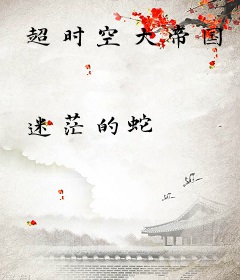 超时空大帝国
迷茫的蛇